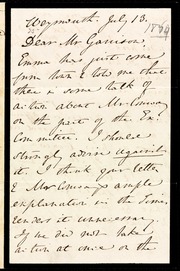 Weymouth. July 13.
Dear Mr Garrison.
Emma has just come
from town & told me that
there is some talk of
action about Mr Conway
on the part of the Ex.
Committee. I should
strongly advise against
it. I think your letter
& Mr Conway's ample
explanation in the Times,
renders it unnecessary.
If we did not take
action at once on the